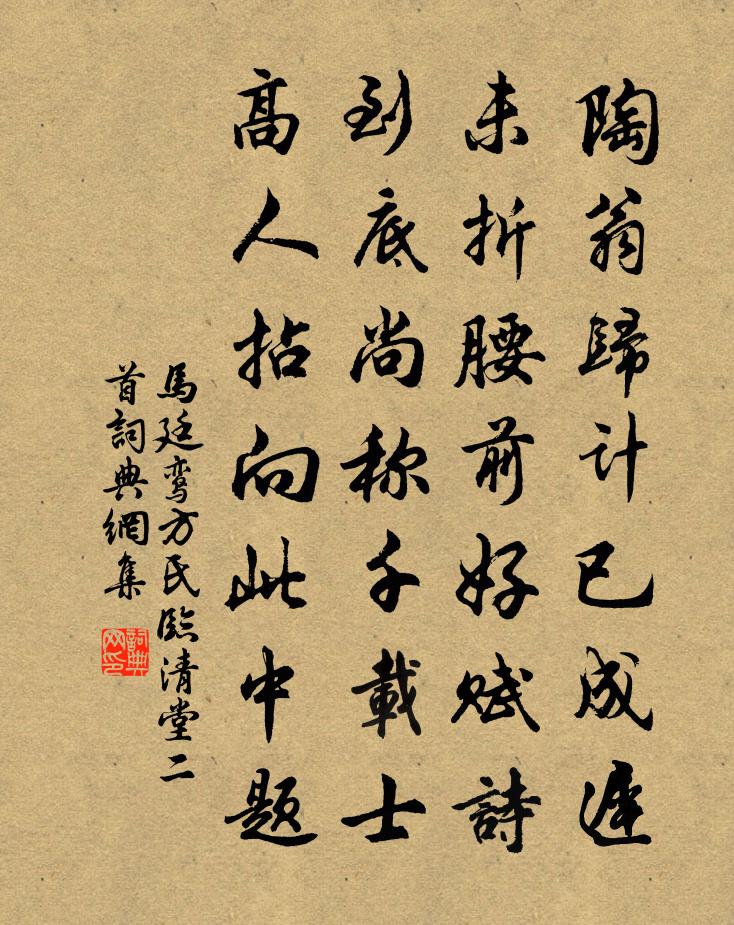 陶翁歸计已成遲
未折腰前好赋詩
到底尚称千載士
高人拈向此中題
馬廷鸾方氏臨清堂二
首詞典網集
詞典
网印